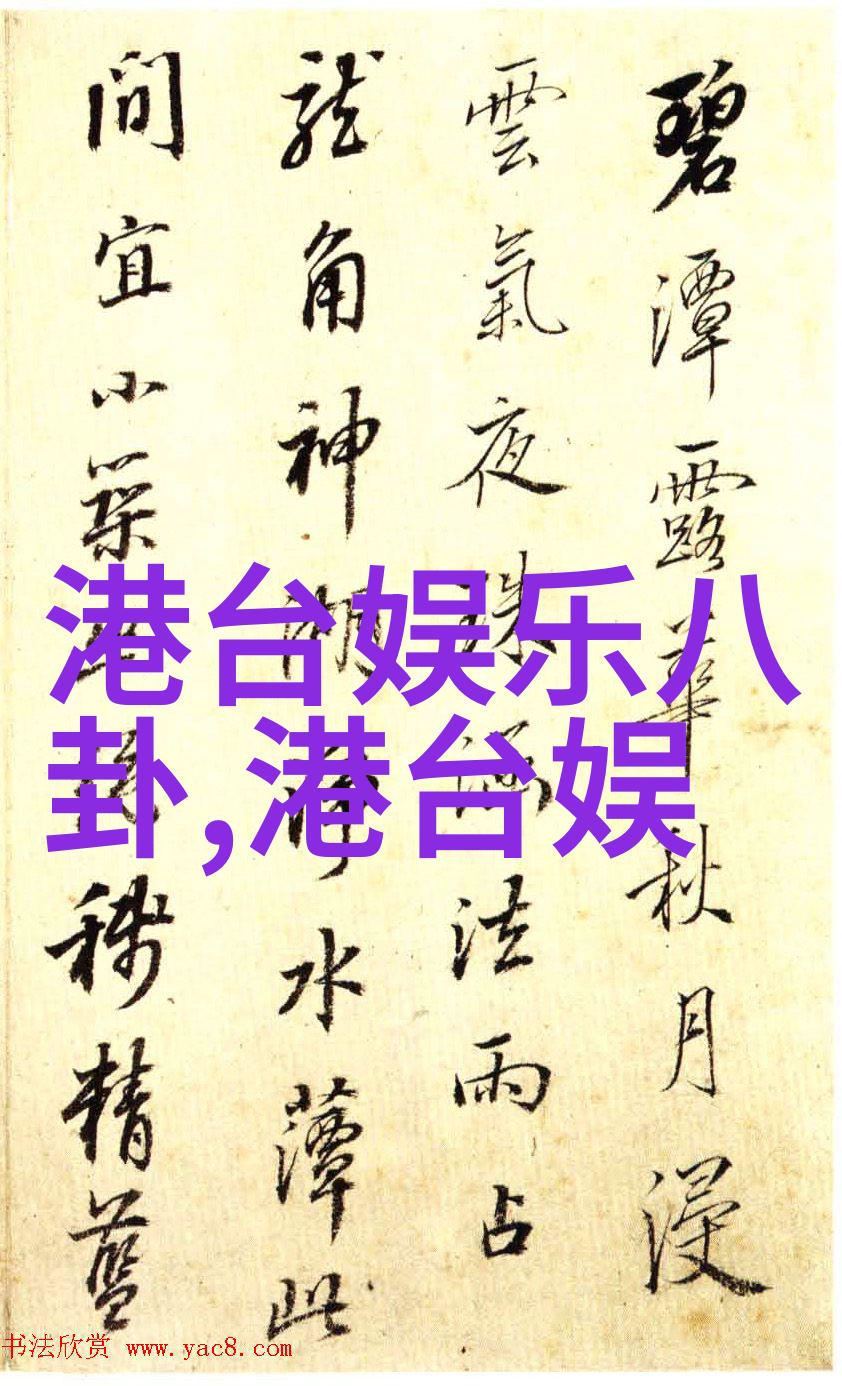 碧潭露華秋月浸
雲氣夜珠涵法雨占
龍角神湖淨水薄此
間宜小築
稀精藍
港台娱乐八
卦,港台娱
书法欣赏 www.yac8.com